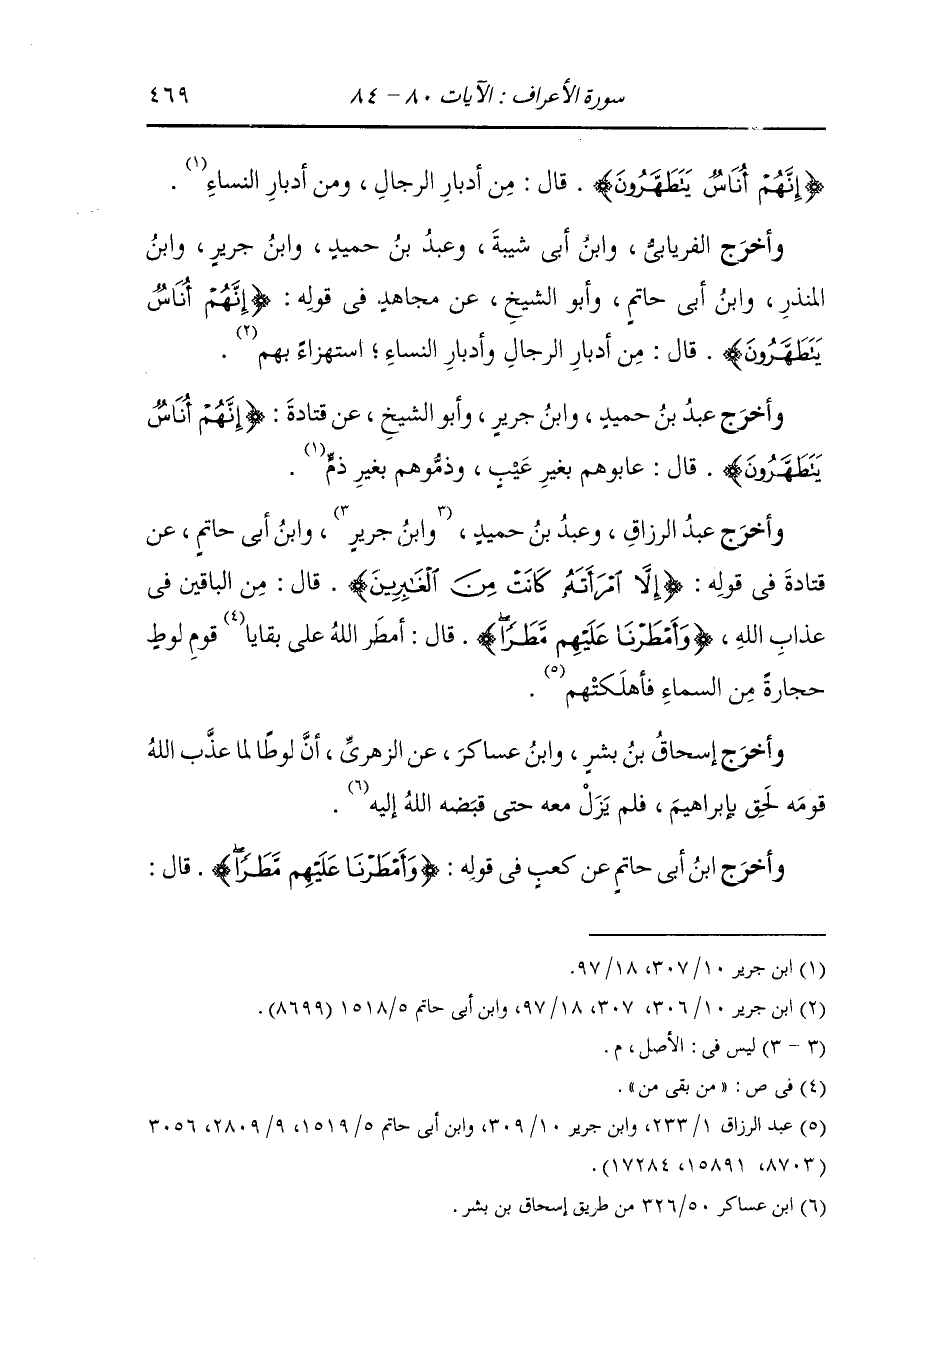 سورة الأعراف : الآيات ٨٠ – ٨٤ ٤٦٩
﴿إِنَّهُمْ أُنَاسٌ يَتَطَهَّرُونَ﴾ . قال : مِن أدبارِ الرجالِ ، ومن أدبارِ النساءِ(١) .
وأخرَج الفريابىُّ ، وابنُ أبى شيبةَ ، وعبدُ بنُ حميدٍ ، وابنُ جريرٍ ، وابنُ
المنذرِ ، وابنُ أبى حاتمٍ ، وأبو الشيخِ ، عن مجاهدٍ فى قولِه : ﴿إِنَّهُمْ أُنَاسٌ
يَتَطَهَّرُونَ﴾ . قال : مِن أدبارِ الرجالِ وأدبارِ النساءِ ؛ استهزاءً بهم(٢) .
وأخرَج عبدُ بنُ حميدٍ ، وابنُ جريرٍ ، وأبو الشيخِ ، عن قتادةَ : ﴿إِنَّهُمْ أُنَاسٌ
يَتَطَهَّرُونَ﴾ . قال : عابوهم بغيرِ عَيْبٍ ، وذمُّوهم بغيرِ ذمٍّ(١) .
وأخرَج عبدُ الرزاقِ ، وعبدُ بنُ حميدٍ ، (٣وابنُ جريرٍ٣) ، وابنُ أبى حاتمٍ ، عن
قتادةَ فى قولِه : ﴿إِلَّا ٱمْرَأَتَهُۥ كَانَتْ مِنَ ٱلْغَٰبِرِينَ﴾ . قال : مِن الباقين فى
عذابِ اللهِ ، ﴿وَأَمْطَرْنَا عَلَيْهِم مَّطَرًاۖ﴾ . قال : أمطَر اللهُ على بقايا(٤) قومِ لوطٍ
حجارةً مِن السماءِ فأهلَكتْهم(٥) .
وأخرَج إسحاقُ بنُ بشرٍ ، وابنُ عساكرَ ، عن الزهرىِّ ، أنَّ لوطًا لما عذَّب اللهُ
قومَه لَحِق بإبراهيمَ ، فلم يَزَلْ معه حتى قبَضه اللهُ إليه(٦) .
وأخرَج ابنُ أبى حاتمٍ عن كعبٍ فى قولِه : ﴿وَأَمْطَرْنَا عَلَيْهِم مَّطَرًاۖ﴾ . قال :
(١) ابن جرير ١٠/ ٣٠٧، ١٨/ ٩٧.
(٢) ابن جرير ١٠/ ٣٠٦، ٣٠٧، ١٨/ ٩٧، وابن أبى حاتم ٥/ ١٥١٨ (٨٦٩٩) .
(٣ – ٣) ليس فى : الأصل ، م .
(٤) فى ص : « من بقى من » .
(٥) عبد الرزاق ١/ ٢٣٣، وابن جرير ١٠/ ٣٠٩، وابن أبى حاتم ٥/ ١٥١٩، ٩/ ٢٨٠٩، ٣٠٥٦
(٨٧٠٣، ١٥٨٩١، ١٧٢٨٤) .
(٦) ابن عساكر ٥٠/ ٣٢٦ من طريق إسحاق بن بشر .